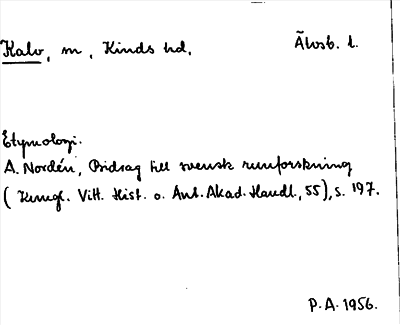 Kalv, m, Kinds hd, Älvsb. l.
Etymologi.
A. Nordén, Bidrag till svensk runforskning
(Kungl. Vitt. Hist. o. Ant. Akad. Handl., 55), s. 197.
P. A. 1956.